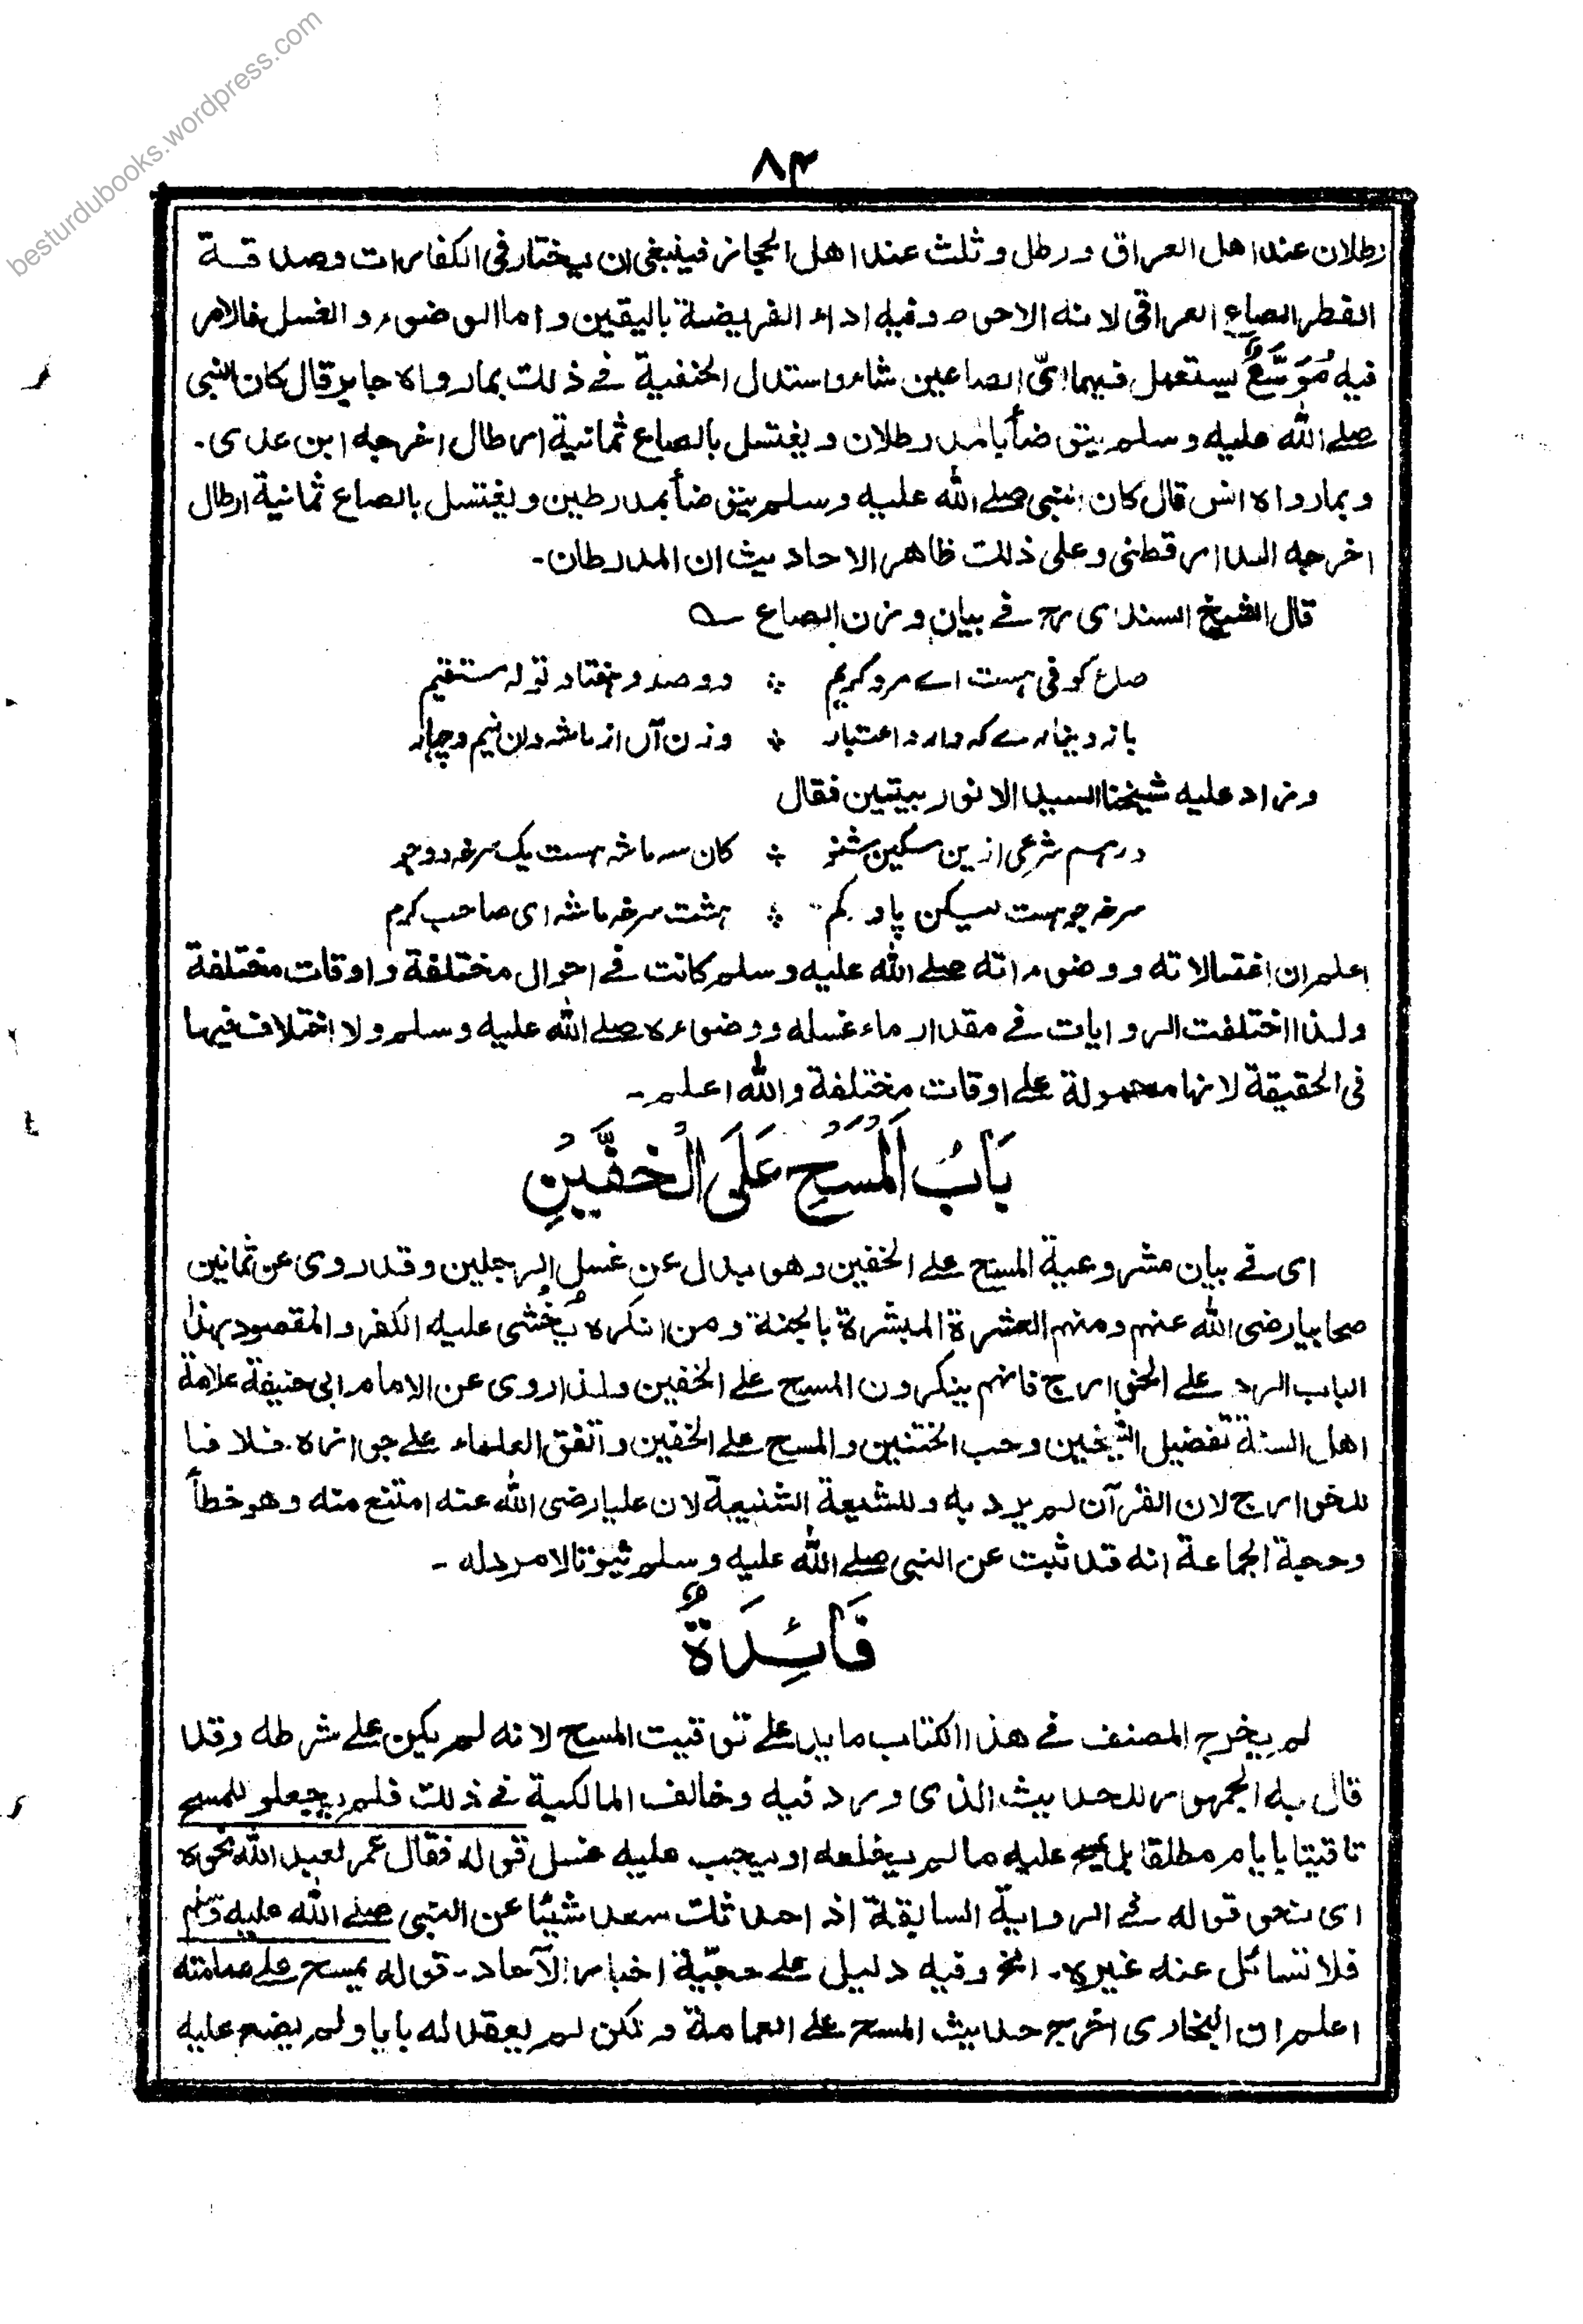 besturdubooks.wordpress.com
۸۴
رطلان عند اهل العراق ورطل وثلث عند اهل الحجاز فينبغي ان يختار في الكفارات وصدقة
الفطر الصاع العراقي لانه الاحوط وفيه اداء الفريضة باليقين واما الوضوء والغسل فالامر
فيه مُوَسَّعٌ يستعمل فيهما ايّ الصاعين شاء واستدل الحنفية في ذلك بما رواه جابر قال كان النبي
صلے الله عليه وسلم يتوضأ بالمد رطلان ويغتسل بالصاع ثمانية ارطال اخرجه ابن عدى۔
وبما رواه انس قال كان النبي صلے الله عليه وسلم يتوضأ بمد رطين ويغتسل بالصاع ثمانية ارطال
اخرجه الدارقطنى وعلى ذلك ظاهر الاحاديث ان المد رطان۔
قال الشيخ السندى رح في بيان وزن الصاع ـه
صاع كوفى ہست اے مرد کریم ۞ دو صد و ہفتاد تولہ مستقیم
باز دینارے کہ دارد اعتبار ۞ وزن آں از ماشہ دان نیم و چہار
وزاد عليه شيخنا السيد الانور ببيتين فقال
درہم شرعی ازین مسکین شنو ۞ کان سہ ماشہ ہست یک سرخہ دو جو
سرخہ جو ہست لیکن پاو کم ۞ ہشت سرخہ ماشہ ای صاحب کرم
اعلم ان اغتسالاته ووضوءاته صلے الله عليه وسلم كانت في احوال مختلفة واوقات مختلفة
ولذا اختلفت الروايات في مقدار ماء غسله ووضوءه صلے الله عليه وسلم ولا اختلاف فيها
في الحقيقة لانها محمولة علے اوقات مختلفة والله اعلم۔
بَابُ الْمَسْحِ عَلَى الْخُفَّيْنِ
اى في بيان مشروعية المسح علے الخفين وهو بدل عن غسل الرجلين وقد روى عن ثمانين
صحابيا رضى الله عنهم ومنهم العشرة المبشرة بالجنة ومن انكره يُخْشى عليه الكفر والمقصود بهذا
الباب الرد علے الخوارج فانهم ينكرون المسح علے الخفين ولذا روى عن الامام ابى حنيفة علامة
اهل السنة تفضيل الشيخين وحب الختنين والمسح علے الخفين واتفق العلماء علے جوازه خلافا
للخوارج لان القرآن لم يرد به وللشيعة الشنيعة لان عليا رضى الله عنه امتنع منه وهو خطأ
وحجة الجماعة انه قد ثبت عن النبى صلے الله عليه وسلم ثبوتا لا مرد له ۔
فَائِدَةٌ
لم يخرج المصنف في هذا الكتاب ما يد علے توقيت المسح لانه لم يكن علے شرطه وقد
قال به الجمهور للحديث الذى ورد فيه وخالف المالكية في ذلك فلم يجعلو للمسح
تاقيتا بايام مطلقا بل يمسح عليه ما لم يخلعه او يجب عليه غسل قوله فقال عمر لعبد الله نحوه
اى نحو قوله في الرواية السابقة اذ احدثك سعد شيئا عن النبى صلے الله عليه وسلم
فلا تسائل عنه غيره۔ الخ وفيه دليل علے حجيّة اخبار الآحاد۔ قوله يمسح علے عمامته
اعلم ان البخارى اخرج حديث المسح علے العمامة ولكن لم يعقد له بابا ولم يضع عليه